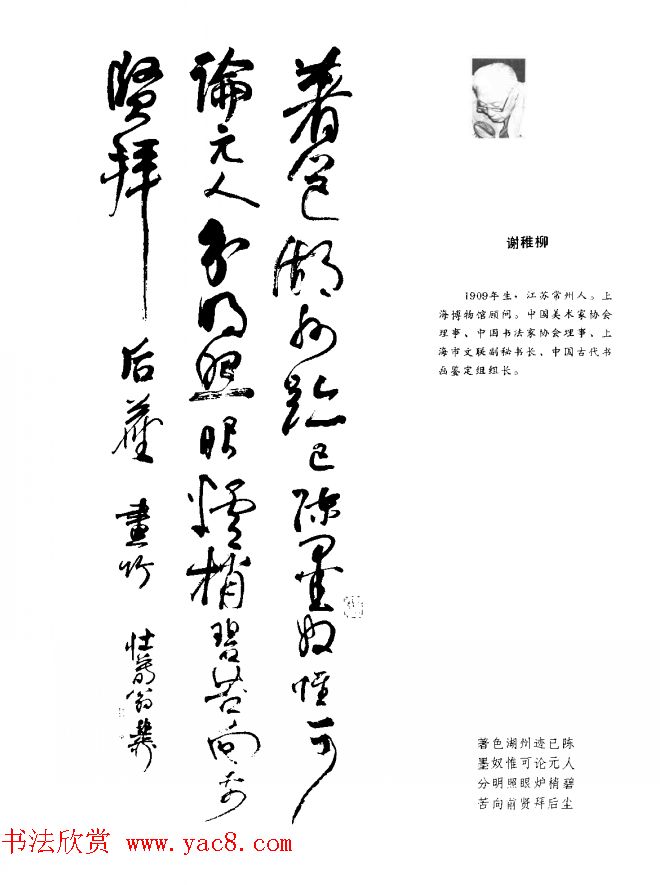 著色湖州跡已陳墨奴惟可
論元人分明照眼爐梢碧苦向前
賢拜后塵 畫竹 壯暮翁稚柳
谢稚柳
1909年生，江苏常州人。上
海博物馆顾问。中国美术家协会
理事、中国书法家协会理事、上
海市文联副秘书长、中国古代书
画鉴定组组长。
著色湖州迹已陈
墨奴惟可论元人
分明照眼炉梢碧
苦向前贤拜后尘
书法欣赏 www.yac8.com